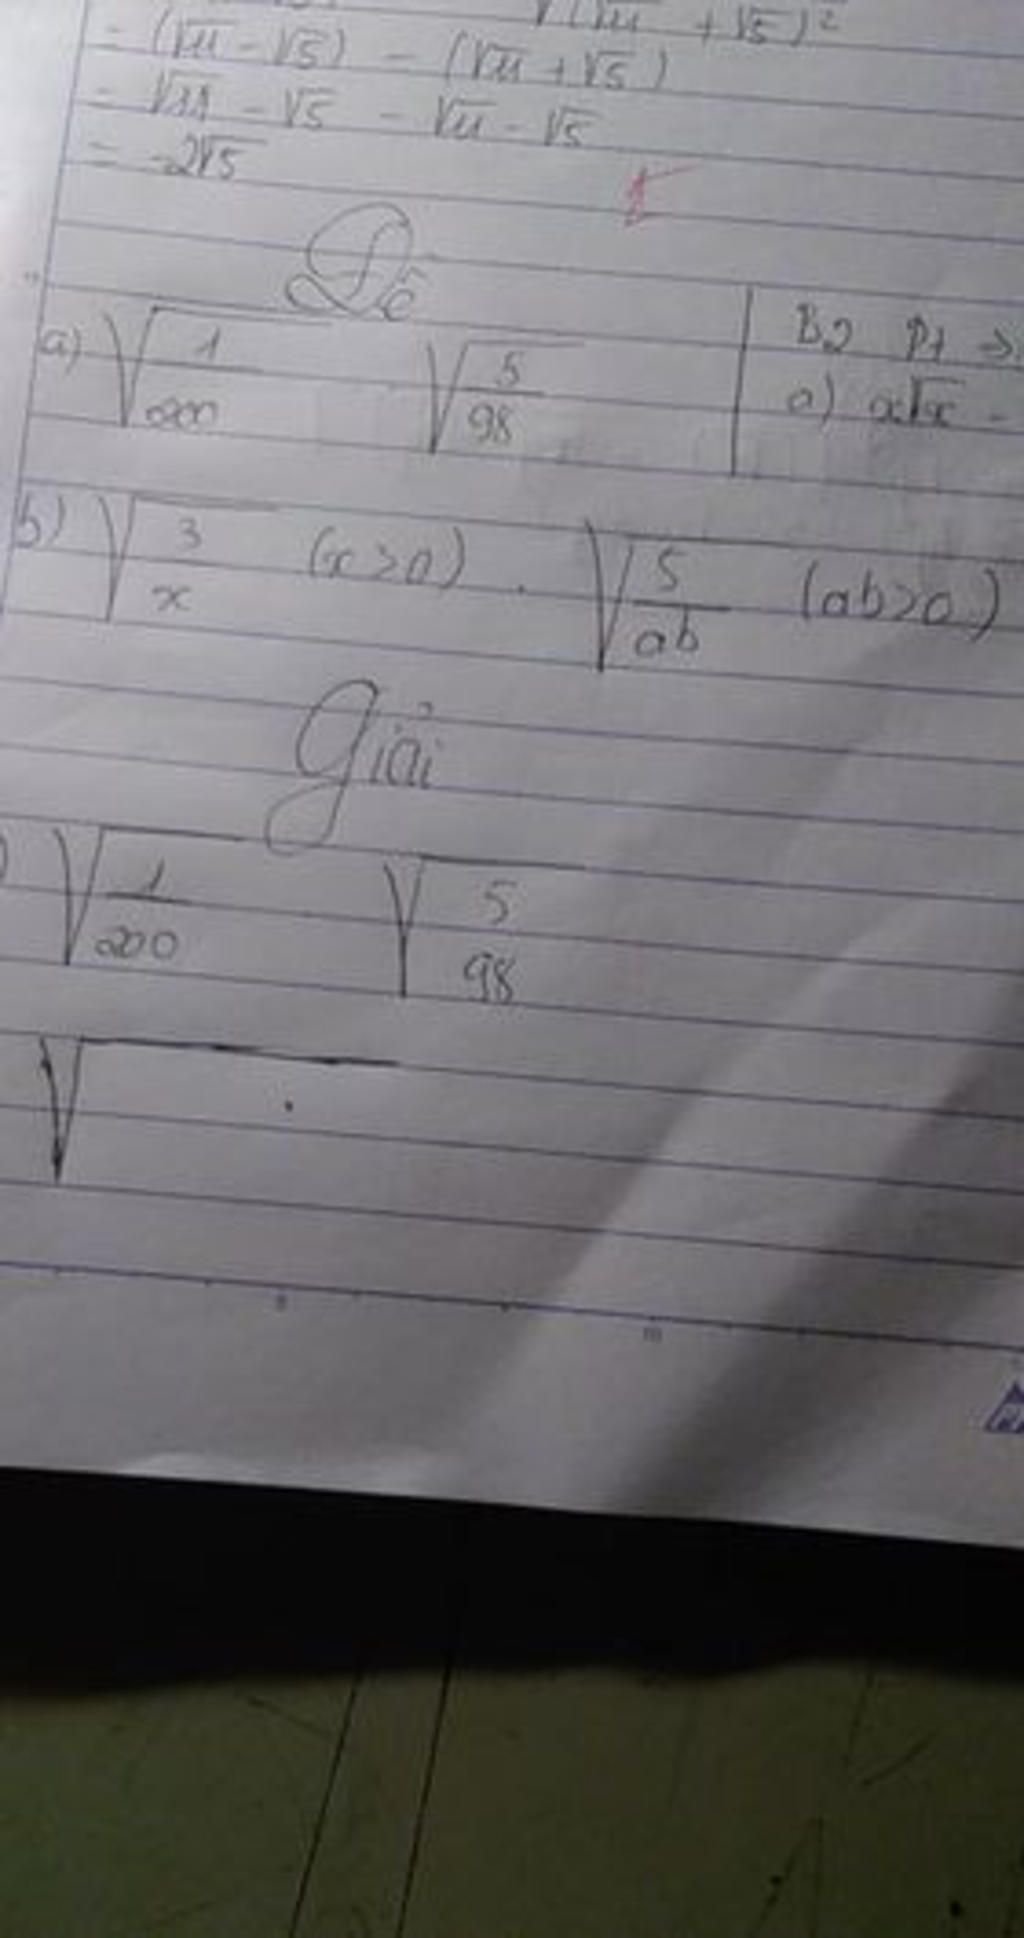 √(√11 + √5)²
= (√11 - √5) - (√11 + √5)
= √11 - √5 - √11 - √5
= -2√5
Đề
a) √(1/200) √(5/98)
B2 Pt →
a) x√x -
b) √(3/x) (x>0) . √(5/ab) (ab>0)
Giải
) √(1/200) √(5/98)
√
5
10